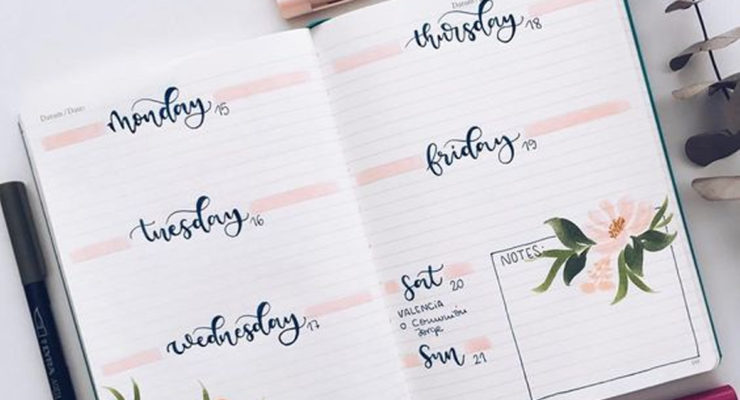 Datum / Date:
monday 15
tuesday 16
wednesday 17
Datum
thursday 18
friday 19
sat 20
VALENCIA
o comunión
Jorge
sun 21
NOTES:
LYRA